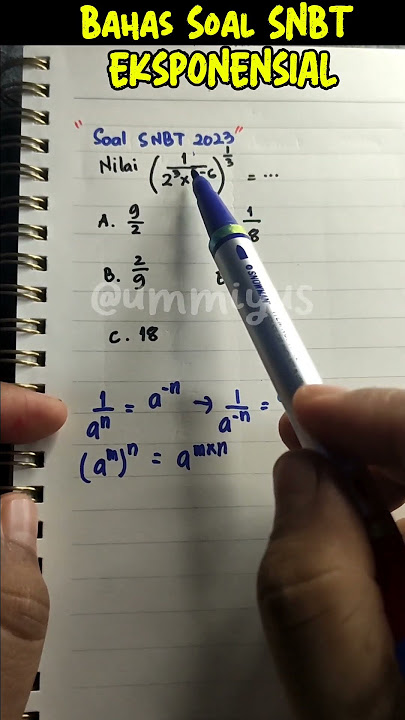 BAHAS SOAL SNBT
EKSPONENSIAL
"Soal SNBT 2023"
Nilai (1/(2³ × ⁻⁶))^(1/3) = ...
A. 9/2
1/8
B. 2/9
@ummiyus
C. 18
1/aⁿ = a⁻ⁿ → 1/a⁻ⁿ =
(aᵐ)ⁿ = aᵐˣⁿ
OSNOWMAN